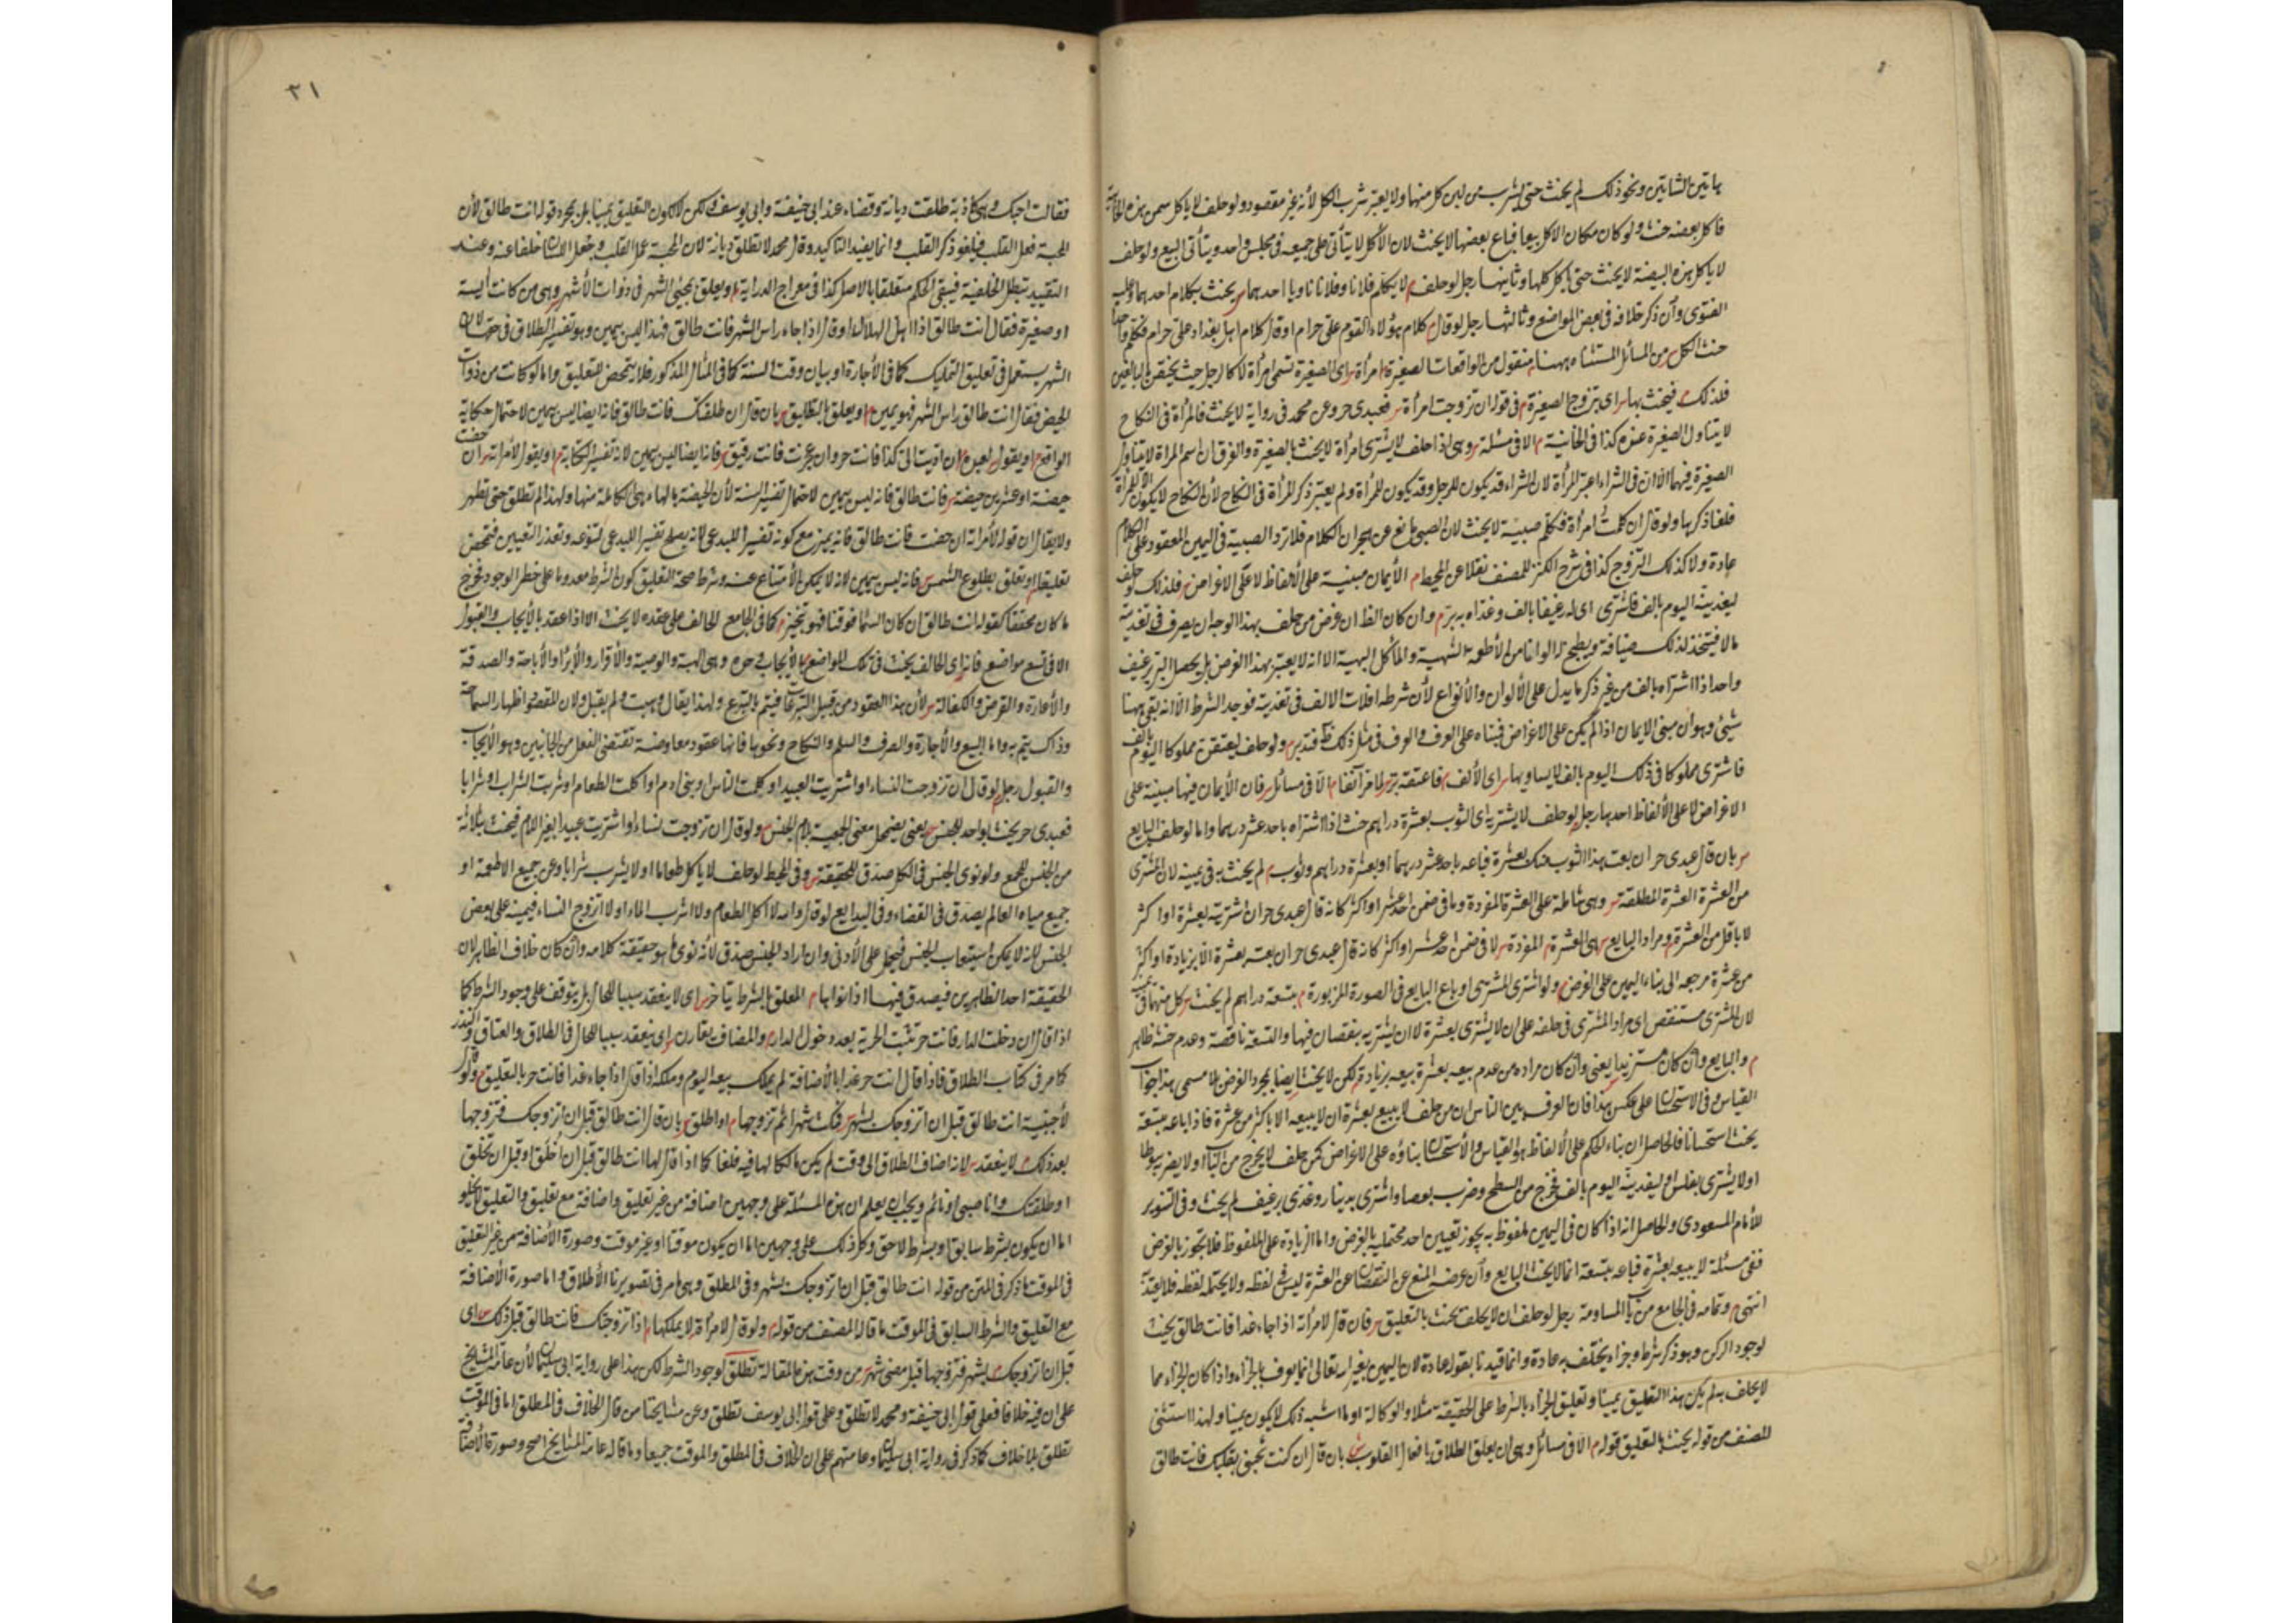 هاتين الشاتين ونحو ذلك لم يحنث حتى يشرب من لبن كل منها ولا يعتبر شرب الكل لأنه غير مقصود ولو حلف لا ياكل سمن هذه الخابية
فاكل بعضه حنث ولو كان مكان الاكل بيعا فباع بعضها لا يحنث لان الأكل لا يتأتى على جميعه في مجلس واحد ويتأتى البيع ولو حلف
لا ياكل هذه البيضة لا يحنث حتى ياكل كلها وثانيها رجل لو حلف لا يكلم فلانا وفلانا ناويا احدهما يحنث بكلام احدهما وعليه
الفتوى وان ذكر خلافه في بعض المواضع وثالثها رجل لو قال كلام هؤلاء القوم على حرام او قال كلام اهل بغداد على حرام فكلم واحدا
حنث الكل من المسائل المستثناه ههنا منقول من الواقعات الصغيرة امرأة اى الصغيرة تسمى امرأة لا كالرجل حيث يختص بالبالغين
فلذلك فيحنث بها اى بتزوج الصغيرة في قوله ان تزوجت امرأة فعبدى حر وعن محمد في رواية لا يحنث فالمرأة في النكاح
لا يتناول الصغيرة عنده كذا في الخانية الا في مسئلة وهى اذا حلف لا يشترى امرأة لا يحنث بالصغيرة والفرق ان اسم المراة لا يتناول
الصغيرة فيهما الا ان في الشراء اعتبر المرأة لان الشراء قد يكون للرجل وقد يكون للمرأة ولم يعتبر ذكر المرأة في النكاح لأن النكاح لا يكون الا للمرأة
فلغا ذكرها ولو قال ان كلمت امرأة فكلم صبية لا يحنث لان الصبى مانع عن هجران الكلام فلا تراد الصبية في اليمين المعقود على الكلام
عادة ولا كذلك التزوج كذا في شرح الكنز للمصنف نقلا عن المحيط الأيمان مبنية على الألفاظ لا على الاغراض فلذلك لو حلف
ليغدينه اليوم بالف فاشترى اى له رغيفا بالف وغداه به بر وان كان الظ ان غرض من حلف بهذا الوجه ان يصرف في تغديته
مالا فيتخذ لذلك ضيافة ويطبخ الوانا من الأطعمة الشهية والمآكل البهية الا انه لا يعتبر بهذا الغرض بل يحصل البر برغيف
واحد اذا اشتراه بالف من غير ذكر ما يدل على الألوان والأنواع لأن شرطه اتلاف الالف في تغديته فوجد الشرط الا انه بقى ههنا
شيئ وهو ان مبنى الايمان اذا لم يكن على الاغراض فبناه على العرف والعرف في مثل ذلك ظ فتدبر ولو حلف ليعتقن مملوكا اليوم بالف
فاشترى مملوكا في ذلك اليوم بالف لا يساويها اى الألف فاعتقه بر لما مر آنفا الا في مسائل فان الأيمان فيها مبنية على
الاغراض لا على الألفاظ احدها رجل لو حلف لا يشتريه اى الثوب بعشرة دراهم حنث اذا اشتراه باحد عشر درهما واما لو حلف البايع
بان قال عبدى حر ان بعت هذا الثوب منك بعشرة فباعه باحد عشر درهما او بعشرة دراهم وثوب لم يحنث به في يمينه لان المشترى
من العشرة العشرة المطلقة وهى شاملة على العشرة المفردة وما في ضمن احد عشر او اكثر كانه قال عبدى حر ان اشتريته بعشرة او اكثر
لا باقل من العشرة ومراد البايع اى العشرة المفردة لا في ضمن احد عشر او اكثر كانه قال عبدى حر ان بعته بعشرة الا بزيادة او اكثر
من عشرة مرجعه الى بناء اليمين على الغرض ولو اشترى المشترى او باع البايع في الصورة المزبورة بتسعة دراهم لم يحنث كل منهما في يمينه
لان المشترى مستنقص اى مراد المشترى في حلفه على ان لا يشترى بعشرة لا ان يشتريه بنقصان فيها والتسعة ناقصة وعدم حنثه ظاهر
والبايع وان كان مستزيدا يعنى وان كان مراده من عدم بيعه بعشرة بيعه بزيادة لكن لا يحنث ايضا بمجرد الغرض بلا مسمى هذا جواب
القياس وفي الاستحسان على عكس هذا فان العرف بين الناس ان من حلف لا يبيع بعشرة ان لا يبيعه الا باكثر من عشرة فاذا باعه بتسعة
يحنث استحسانا فالحاصل ان بناء الحكم على الألفاظ هو القياس والأستحسان بناؤه على الاغراض كمن حلف لا يخرج من الباب او لا يضربه سوطا
او لا يشترى بفلس او ليغدينه اليوم بالف فخرج من السطح وضرب بعصا واشترى بدينار وغدى برغيف لم يحنث وفي التنوير
للأمام المسعودى والحاصل انه اذا كان في اليمين ملفوظ به يجوز تعيين احد محتمليه بالغرض واما الزيادة على الملفوظ فلا يجوز بالغرض
ففى مسئلة لا يبيعه بعشرة فباعه بتسعة انما لا يحنث البايع وان غرضه المنع عن النقصان عن العشرة ليس في لفظه ولا يحتمله لفظه فلا يقيد به
انتهى وتمامه في الجامع من باب المساومة رجل لو حلف ان لا يحلف يحنث بالتعليق فان قال لامرأته اذا جاء غدا فانت طالق يحنث
لوجود الركن وهو ذكر شرط وجزاء يختلف به عادة وانما قيدنا بقوله عادة لان اليمين بغير الله تعالى انما يعرف بالجزاء واذا كان الجزاء مما
لا يحلف به لم يكن هذا التعليق يمينا وتعليق الجزاء بالشرط على الحقيقة مثلا والوكالة او ما اشبه ذلك لا يكون يمينا ولهذا استثنى
المصنف من قوله يحنث بالتعليق قوله الا في مسائل وهى ان يعلق الطلاق بافعال القلوب بان قال ان كنت تحبنى بقلبك فانت طالق
٣١
فقالت احبك وهى كاذبة طلقت ديانة وقضاء عند ابى حنيفة وابى يوسف ولكن لا لكون التعليق يمينا بل بمجرد قوله انت طالق لأن
المحبة فعل القلب فيلغو ذكر القلب وانما يفيد التاكيد وقال محمد لا تطلق ديانة لان المحبة عمل القلب وجعل اللسان خلفا عنه وعند
التقييد تبطل الخلفية فيبقى الحكم متعلقا بالاصل كذا في معراج الدراية او يعلق بمجيئ الشهر في ذوات الأشهر وهى من كانت ايسة
او صغيرة فقال انت طالق اذا اهل الهلال او قال اذا جاء راس الشهر فانت طالق فهذا ليس بيمين وهو تفسير الطلاق في حقها لان
الشهر يستعمل في تعليق التمليك كما في الأجارة او بيان وقت السنة كما في المثال المذكور فلا يتمحض للتعليق واما لو كانت من ذوات
الحيض فقال انت طالق راس الشهر فهو يمين او يعلق بالتطليق بان قال ان طلقتك فانت طالق فانه ايضا ليس بيمين لاحتمال حكاية
الواقع او يقول لعبده ان اديت الى كذا فانت حر وان عجزت فانت رقيق فانه ايضا ليس بيمين لانه تفسير الكتابة او يقول لأمراته ان حضت
حيضة او عشرين حيضة فانت طالق فانه ليس بيمين لاحتمال تفسير السنة لأن الحيضة بالهاء هى الكاملة منها ولهذا لم تطلق حتى تطهر
ولا يقال ان قوله لأمراته ان حضت فانت طالق فانه يمين مع كونه تفسيرا للبدعى لانه يصلح تفسير البدعى لتنوعه وتعذر التعيين فتمحض
تعليقا او تعلق بطلوع الشمس فانه ليس بيمين لانه لا يمكن الأمتناع عنه وشرط صحة التعليق كون الشرط معدوما على خطر الوجود فخرج
ما كان محققا كقوله انت طالق ان كان السماء فوقنا فهو تنجيز كما في الجامع الحالف على عقد لا يحنث الا اذا عقد بالأيجاب والقبول
الا في تسع مواضع فانه اى الحالف يحنث في تلك المواضع بالأيجاب وحده وهى الهبة والوصية والأقرار والأبراء والأباحة والصدقة
والأعارة والقرض والكفالة لأن هذه العقود من قبيل التبرعات فيتم بالتبرع ولهذا يقال وهبت ولم يقبل ولان المقصود اظهار السماحة
وذاك يتم به واما البيع والأجارة والصرف والسلم والنكاح ونحوها فانها عقود معاوضة تقتضى الفعل من الجانبين وهو الأيجاب
والقبول رجل لو قال ان تزوجت النساء او اشتريت العبيد او كلمت الناس او بنى ادم او اكلت الطعام او شربت الشراب او شرابا
فعبدى حر يحنث بواحد للجنس يعنى يضمحل معنى الجمعية بلام الجنس ولو قال ان تزوجت نساء او اشتريت عبيدا بغير اللام فيحنث بثلاثة
من الجنس للجمع ولو نوى الجنس في الكل صدق للحقيقة وفي المحيط لو حلف لا ياكل طعاما او لا يشرب شرابا وعن جميع الاطعمة او
جميع مياه العالم يصدق في القضاء وفي البدايع لو قال والله لا اكل الطعام ولا اشرب الماء او لا اتزوج النساء فيمينه على بعض
الجنس لانه لا يمكن استيعاب الجنس فيحمل على الأدنى وان اراد الجنس صدق لأنه نوى ما هو حقيقة كلامه وان كان خلاف الظاهر لان
الحقيقة احد الظاهرين فيصدق فيها اذا نواها المعلق بالشرط يتاخر اى لا ينعقد سببا للحال بل يتوقف على وجود الشرط كما
اذا قال ان دخلت الدار فانت حر تثبت الحرية بعد دخول الدار والمضاف يقارن اى ينعقد سببا للحال في الطلاق والعتاق والنذر
كما مر في كتاب الطلاق فاذا قال انت حر غدا بالأضافة لم يملك بيعه اليوم وملكه اذا قال اذا جاء غدا فانت حر بالتعليق ولو قال
لأجنبية انت طالق قبل ان اتزوجك بشهر فمكث شهرا ثم تزوجها او اطلق بان قال انت طالق قبل ان اتزوجك فتزوجها
بعد ذلك لا ينعقد لانه اضاف الطلاق الى وقت لم يكن مالكا لها فيه فلغا كما اذا قال لها انت طالق قبل ان اخلق او قبل ان تخلق
او طلقتك وانا صبى او نائم ويجب ان يعلم ان هذه المسئلة على وجهين اضافة من غير تعليق واضافة مع تعليق والتعليق لا يخلو
اما ان يكون بشرط سابق او بشرط لاحق وكل ذلك على وجهين اما ان يكون موقتا او غير موقت وصورة الأضافة من غير التعليق
في الموقت ما ذكر في المتن من قوله انت طالق قبل ان اتزوجك بشهر وفي المطلق وهى ما مر في تصويرنا الأطلاق واما صورة الأضافة
مع التعليق والشرط السابق في الموقت ما قاله المصنف من قوله ولو قال لامرأة لا يملكها اذا تزوجتك فانت طالق قبل ذلك اى
قبل ان اتزوجك بشهر فتزوجها قبل مضى شهر من وقت هذه المقالة تطلق لوجود الشرط لكن هذا على رواية ابى سليمان لأن عامة المشايخ
على ان فيه خلافا فعلى قول ابى حنيفة ومحمد لا تطلق وعلى قول ابى يوسف تطلق وعن مشايخنا من قال الخلاف في المطلق اما في الموقت
تطلق بلا خلاف كما ذكر في رواية ابى سليمان وعامتهم على ان الخلاف في المطلق والموقت جميعا وما قاله عامة المشايخ اصح وصورة الأضافة